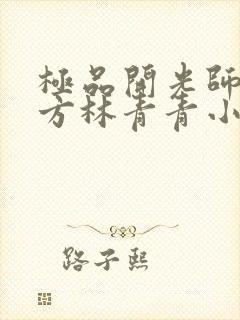 極品開光師
方林青青小
路子熙